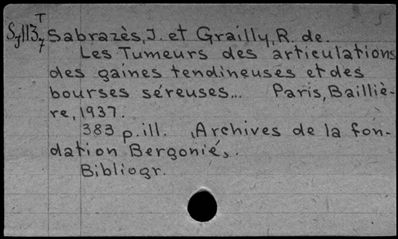 T
S,113,7 Sabrazès, J. et Grailly, R. de.
Les Tumeurs des articulations
des gaines tendineuses et des
bourses séreuses... Paris, Bailliè-
re, 1937.
383 p. ill. (Archives de la fon-
dation Bergonié).
Bibliogr.